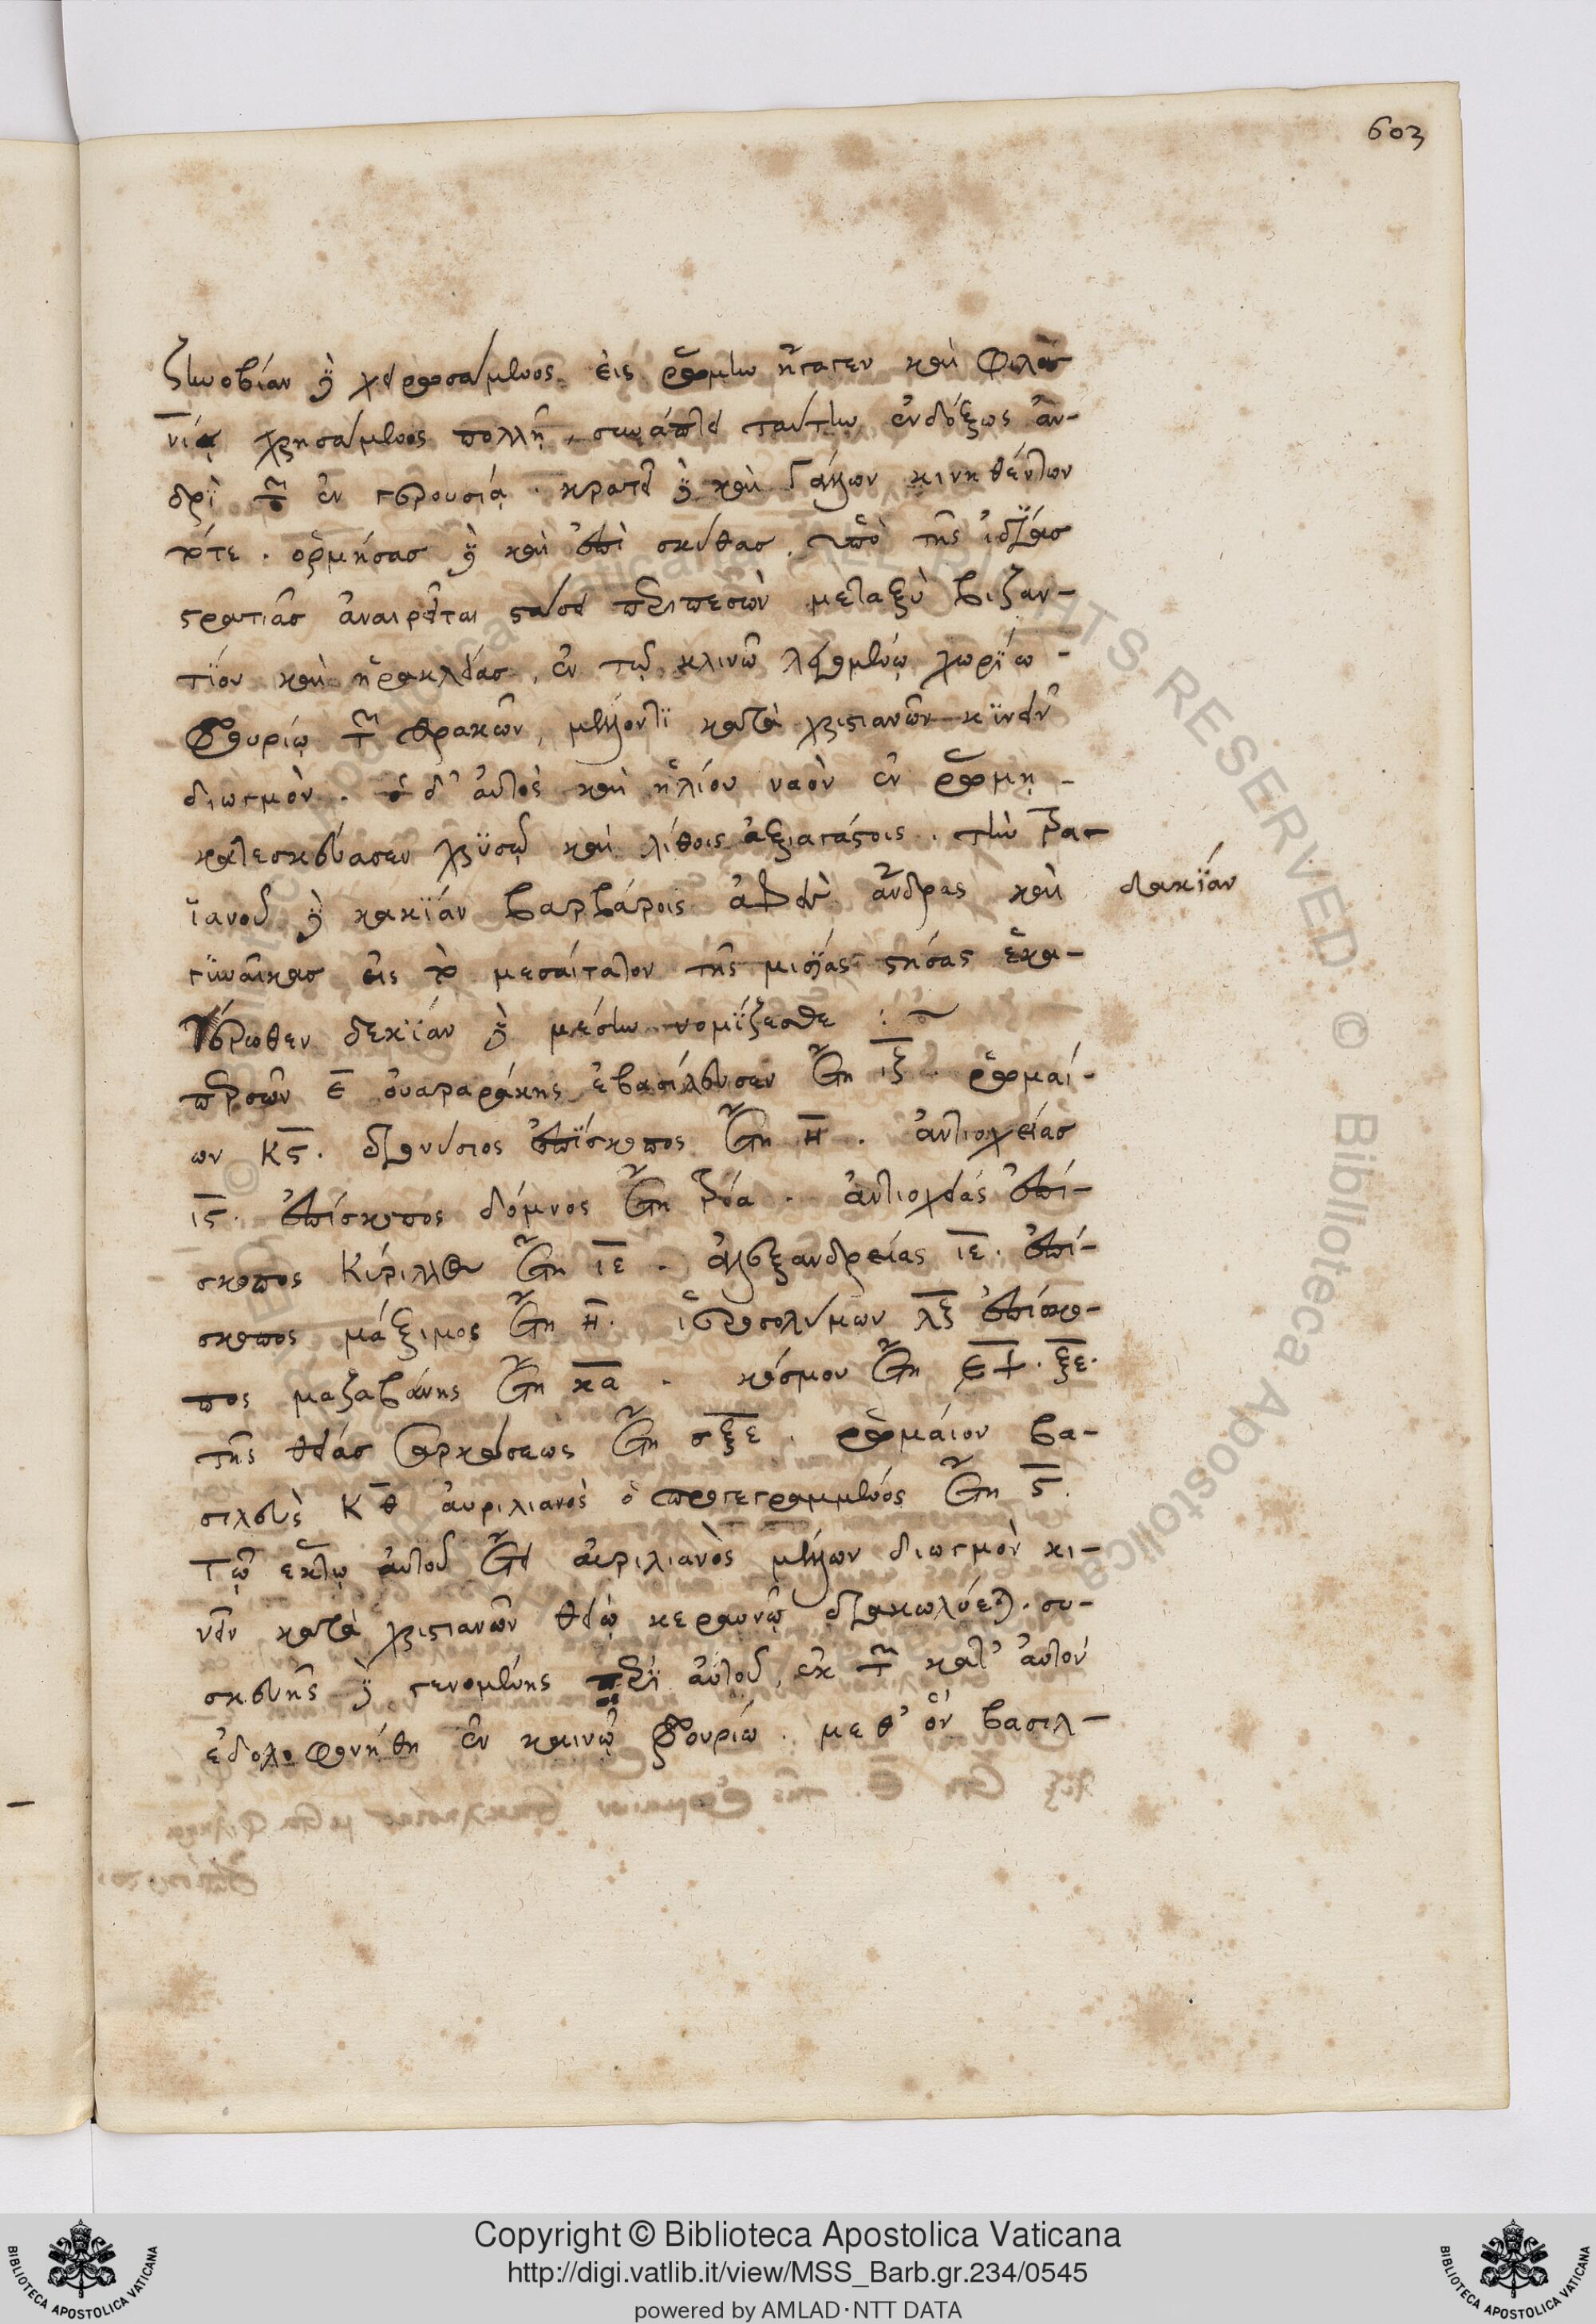 603
ζηνοβίαν δὲ χειρωσάμενος εἰς ῥώμην ἤγαγεν καὶ φιλα
νίᾳ χρησάμενος πολλῇ, συνάπτει ταύτην ἐνδόξως ἀν-
δρὶ τῶν ἐν γερουσίᾳ. κρατεῖ δὲ καὶ γάλλων κινηθέντων
τότε. ὁρμήσας δὲ καὶ ἐπὶ σκύθας, ὑπὸ τῆς ἰδίας
στρατιᾶς ἀναιρεῖται στάσει περιπεσὼν μεταξὺ βιζαν-
τίου καὶ ἡρακλείας, ἐν τῷ κλινῷ λεγομένῳ χωρίῳ-
φρουρίῳ τῶν θρακῶν, μέλλοντι κατὰ χριστιανῶν κινεῖν
διωγμόν. ὁ δ' αὐτὸς καὶ ἡλίου ναὸν ἐν ῥώμῃ-
κατεσκεύασεν χρυσῷ καὶ λίθοις ἀξιαγάστοις. τὴν τρα-
ϊανοῦ δὲ κακίαν βαρβάροις ἀφεὶς ἄνδρας καὶ
δακίαν
γυναῖκας εἰς τὸ μεσαίτατον τῆς μισίας στήσας ἑκα-
τέρωθεν δεκίαν δὲ μέσην νομίζεσθε :~
περσῶν ε οὐαραράκης ἐβασίλευσεν ἔτη ιξ. ῥωμαί-
ων κς. διονύσιος ἐπίσκοπος ἔτη η. ἀντιοχείας
ις. ἐπίσκοπος δόμνος ἔτη . ἀντιοχείας ἐπί-
σκοπος κύριλλος ἔτη ιε. ἀλεξανδρείας ιε. ἐπί-
σκοπος μάξιμος ἔτη η. ἱεροσολύμων λξ ἐπίσκο-
πος μαζαβάνης ἔτη κα. κόσμου ἔτη . ξε.
τῆς θείας σαρκώσεως ἔτη σξε. ῥωμαίον βα-
σιλεὺς κθ αὐριλιανὸς ὁ προγεγραμμένος ἔτη ς.
τῷ ἕκτῳ αὐτοῦ ἔτει αὐριλιανὸς μέλλων διωγμὸν κι-
νεῖν κατὰ χριστιανῶν θείῳ κεραυνῷ διακωλύεται. συ-
σκευῆς δὲ γενομένης περὶ αὐτοῦ, ἐκ τῶν κατ' αὐτοῦ
ἐδολοφονήθη ἐν καινῷ φρουρίῳ. μεθ' ὃν βασιλ-
Copyright © Biblioteca Apostolica Vaticana
http://digi.vatlib.it/view/MSS_Barb.gr.234/0545
powered by AMLAD·NTT DATA